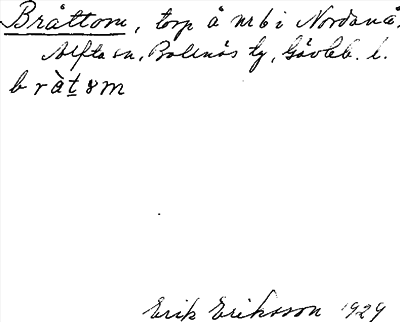 Bråttom, torp å nr 6 i Nordanå.
Alfta sn, Bollnäs tg, Gävleb. l.
bràt8m
Erik Eriksson 1929